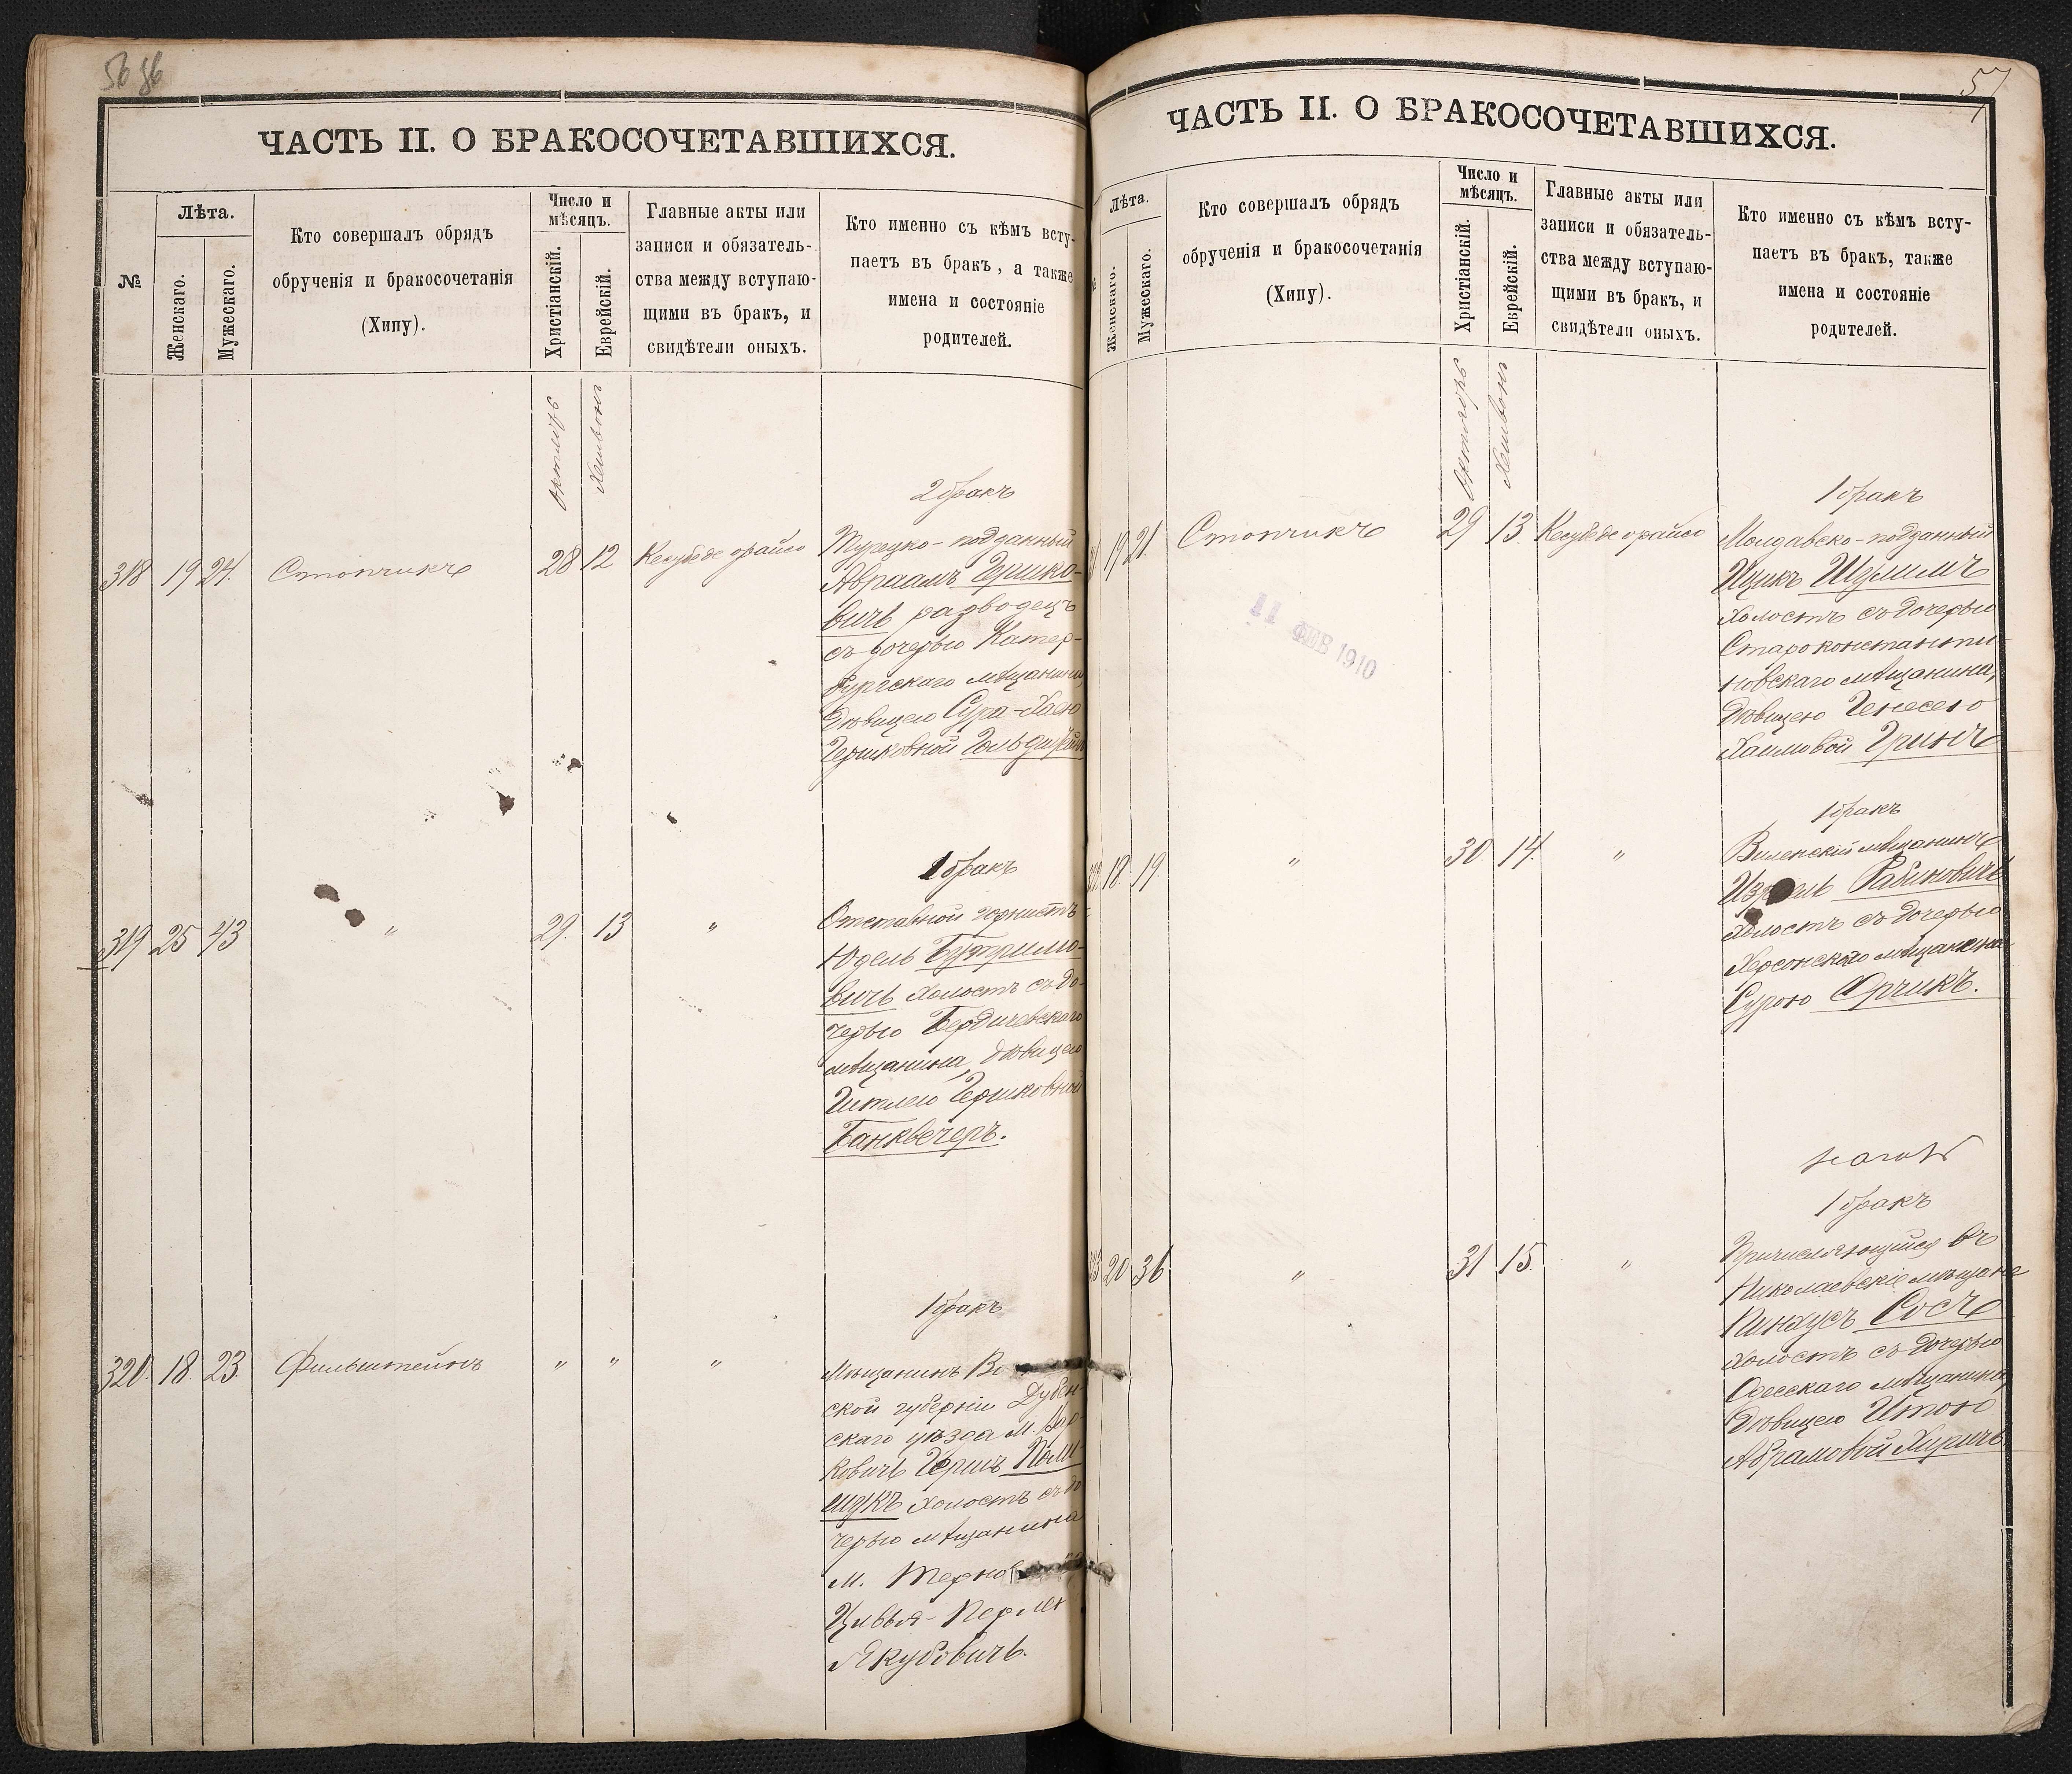 56 56
ЧАСТЬ II. О БРАКОСОЧЕТАВШИХСЯ.
№
Лѣта.
Женскаго.
Мужескаго.
Кто совершалъ обрядъ
обрученія и бракосочетанія
(Хипу).
Число и
мѣсяцъ.
Христіанскій.
Еврейскій.
Главные акты или
записи и обязатель-
ства между вступаю-
щими въ бракъ, и
свидѣтели оныхъ.
Кто именно съ кѣмъ всту-
паетъ въ бракъ, а также
имена и состояніе
родителей.
Октябрь
Хешвонъ
2 бракъ
318 19 24. Стопчикъ 28 12 Кесубе де орайсо
Турецко-подданный
Авраамъ Гершко-
вичъ разводецъ
съ дочерью Катер-
бургскаго мѣщанина
дѣвицею Сура-Хаею
Гершковной
1 бракъ
319 25 43 " 29. 13 "
Отставной горнистъ
Юдель Бутримо-
вичъ холостъ съ до-
черью Бердичевскаго
мѣщанина, дѣвицею
Гитлею Гершковной
Банквечеръ.
1 бракъ
320. 18. 23. Фильштейнъ " " "
Мѣщанинъ Во
ской губерніи Дубен-
скаго уѣзда м.
ковичъ Гершъ
щукъ холостъ съ до
черью мѣщанина
м. Тернов
Цивья-Перля
Якубовичъ.
57
ЧАСТЬ II. О БРАКОСОЧЕТАВШИХСЯ.
Лѣта.
Женскаго.
Мужескаго.
Кто совершалъ обрядъ
обрученія и бракосочетанія
(Хипу).
Число и
мѣсяцъ.
Христіанскій.
Еврейскій.
Главные акты или
записи и обязатель-
ства между вступаю-
щими въ бракъ, и
свидѣтели оныхъ.
Кто именно съ кѣмъ всту-
паетъ въ бракъ, также
имена и состояніе
родителей.
Октябрь
Хешвонъ
1 бракъ
19 21. Стопчикъ 29 13. Кесубе де орайсо
Молдавско-подданный
Ицикъ Шулимъ
холостъ съ дочерью
Староконстанти-
новскаго мѣщанина,
дѣвицею Генесею
Хаимовой Гринъ
11 ФЕВ 1910
1 бракъ
322 18. 19. " 30. 14. "
Виленскій мѣщанинъ
Изр ль Рабиновичъ
холостъ съ дочерью
Херсонскаго мѣщанина
Сурою Орчикъ.
1 бракъ
20 36 " 31 15. "
Причисляющійся въ
Николаевскіе мѣщане
Пинхусъ Сосъ
холостъ съ дочерью
Одесскаго мѣщанина,
дѣвицею Итою
Абрамовой